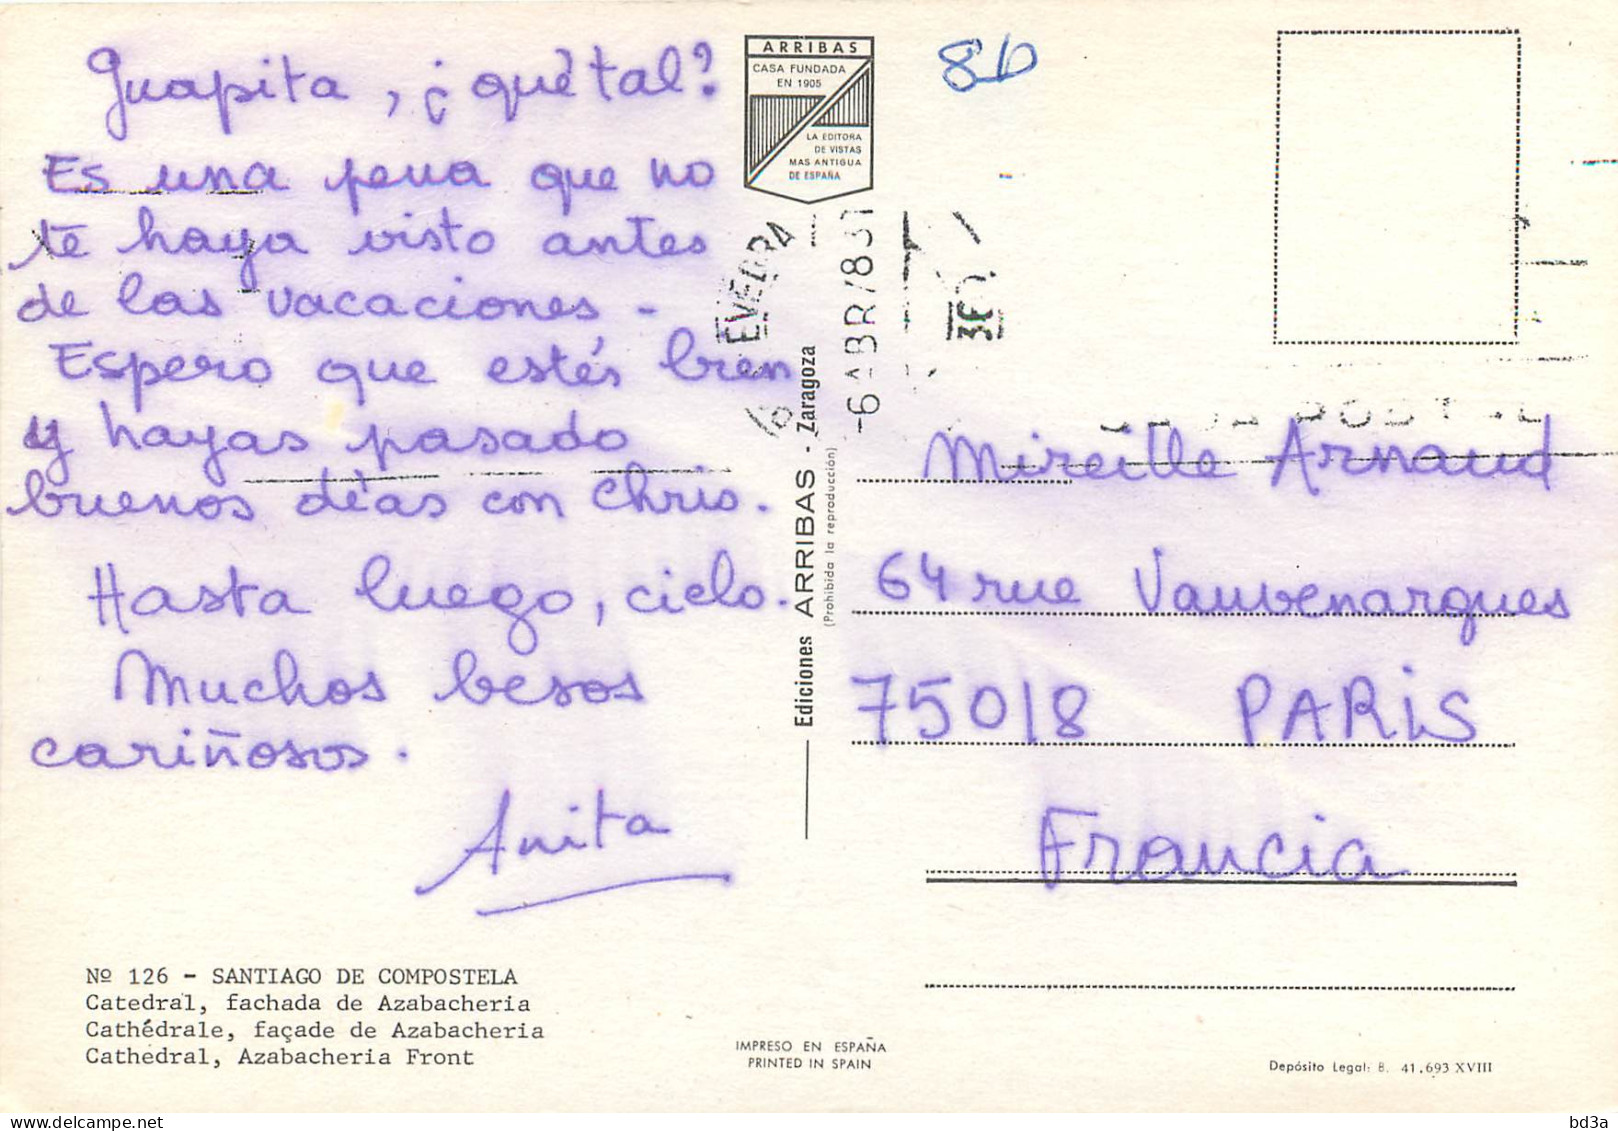 Guapita, ¿qué tal?
Es una pena que no
te haya visto antes
de las vacaciones -
Espero que estés bien
y hayas pasado
buenos días con Chris.
Hasta luego, cielo.
Muchos besos
cariñosos.
Anita
Nº 126 - SANTIAGO DE COMPOSTELA
Catedral, fachada de Azabacheria
Cathédrale, façade de Azabacheria
Cathedral, Azabacheria Front
ARRIBAS
CASA FUNDADA
EN 1905
LA EDITORA
DE VISTAS
MAS ANTIGUA
DE ESPAÑA
Ediciones ARRIBAS - Zaragoza
(Prohibida la reproducción)
IMPRESO EN ESPAÑA
PRINTED IN SPAIN
86
EVEDRA
-6 ABR/83
Mireille Arnaud
64 rue Vauvenargues
75018 PARIS
Francia
Depósito Legal: B. 41.693 XVIII
bd3a